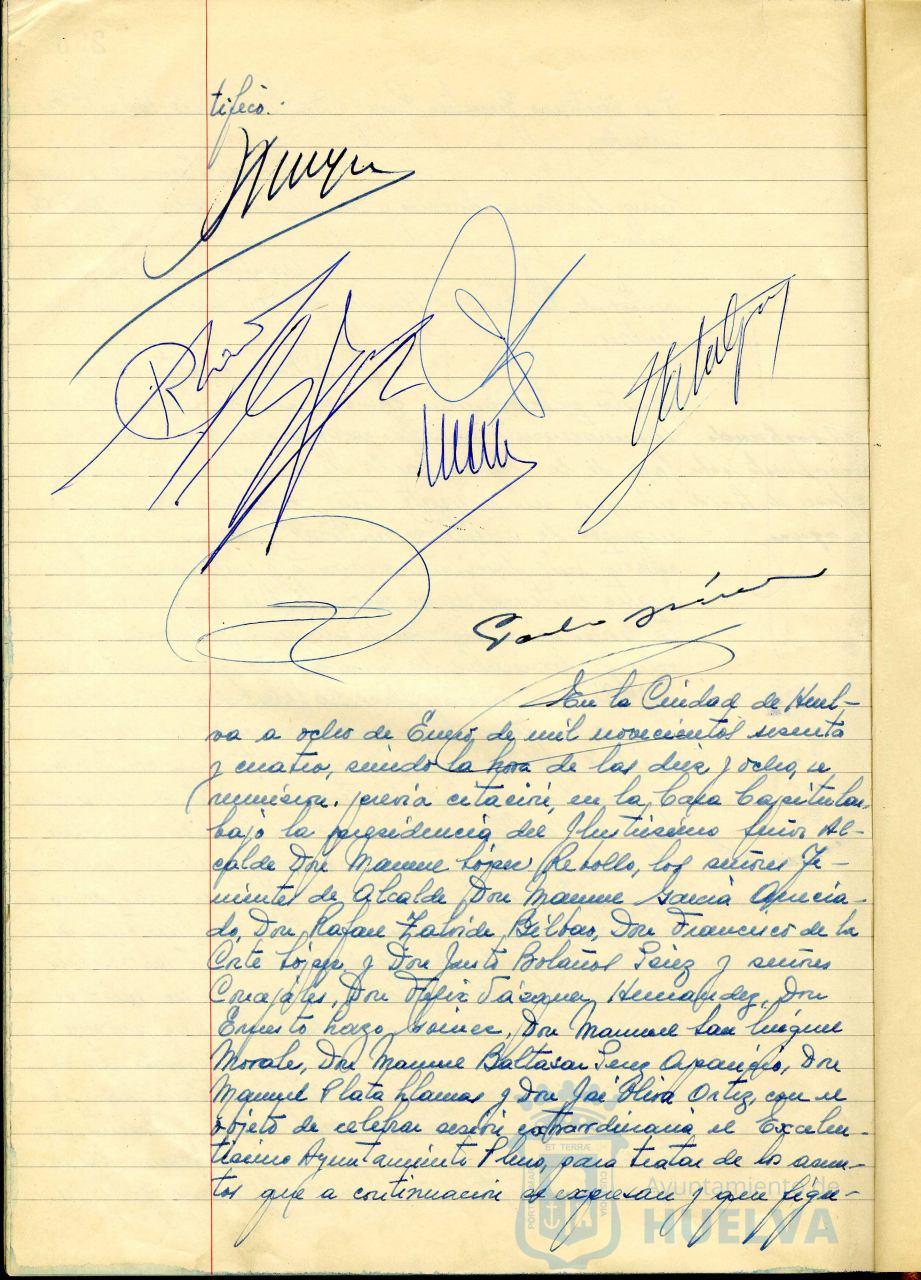 tifico.
En la Ciudad de Huel-
va a ocho de Enero de mil novecientos sesenta
y cuatro, siendo la hora de las diez y ocho, se
reunieron. previa citación, en la Casa Capitular
bajo la presidencia del Ilustrísimo Señor Al-
calde Don Manuel López Rebollo, los señores Te-
nientes de Alcalde Don Manuel García
do, Don Rafael Zalvide Bilbao, Don Francisco de la
Corte López y Don Justo Bolaños Pérez y señores
Concejales, Don Félix Vázquez Hernández, Don
Ernesto Lazo Don Manuel San Miguel
Morales, Don Manuel Baltasar Pérez Aparicio, Don
Manuel Plata Llamas y Don José Oliva Ortiz, con el
objeto de celebrar sesión extraordinaria el Excelen-
tísimo Ayuntamiento Pleno, para tratar de los asun-
tos que a continuación se expresan y que figu-
ET TERRÆ
Ayuntamiento de
HUELVA